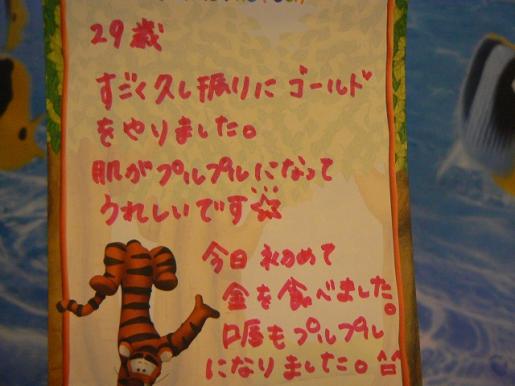 29歳
すごく久し振りにゴールド
をやりました。
肌がプルプルになって
うれしいです☆
今日初めて
金を食べました。
口唇もプルプル
になりました。